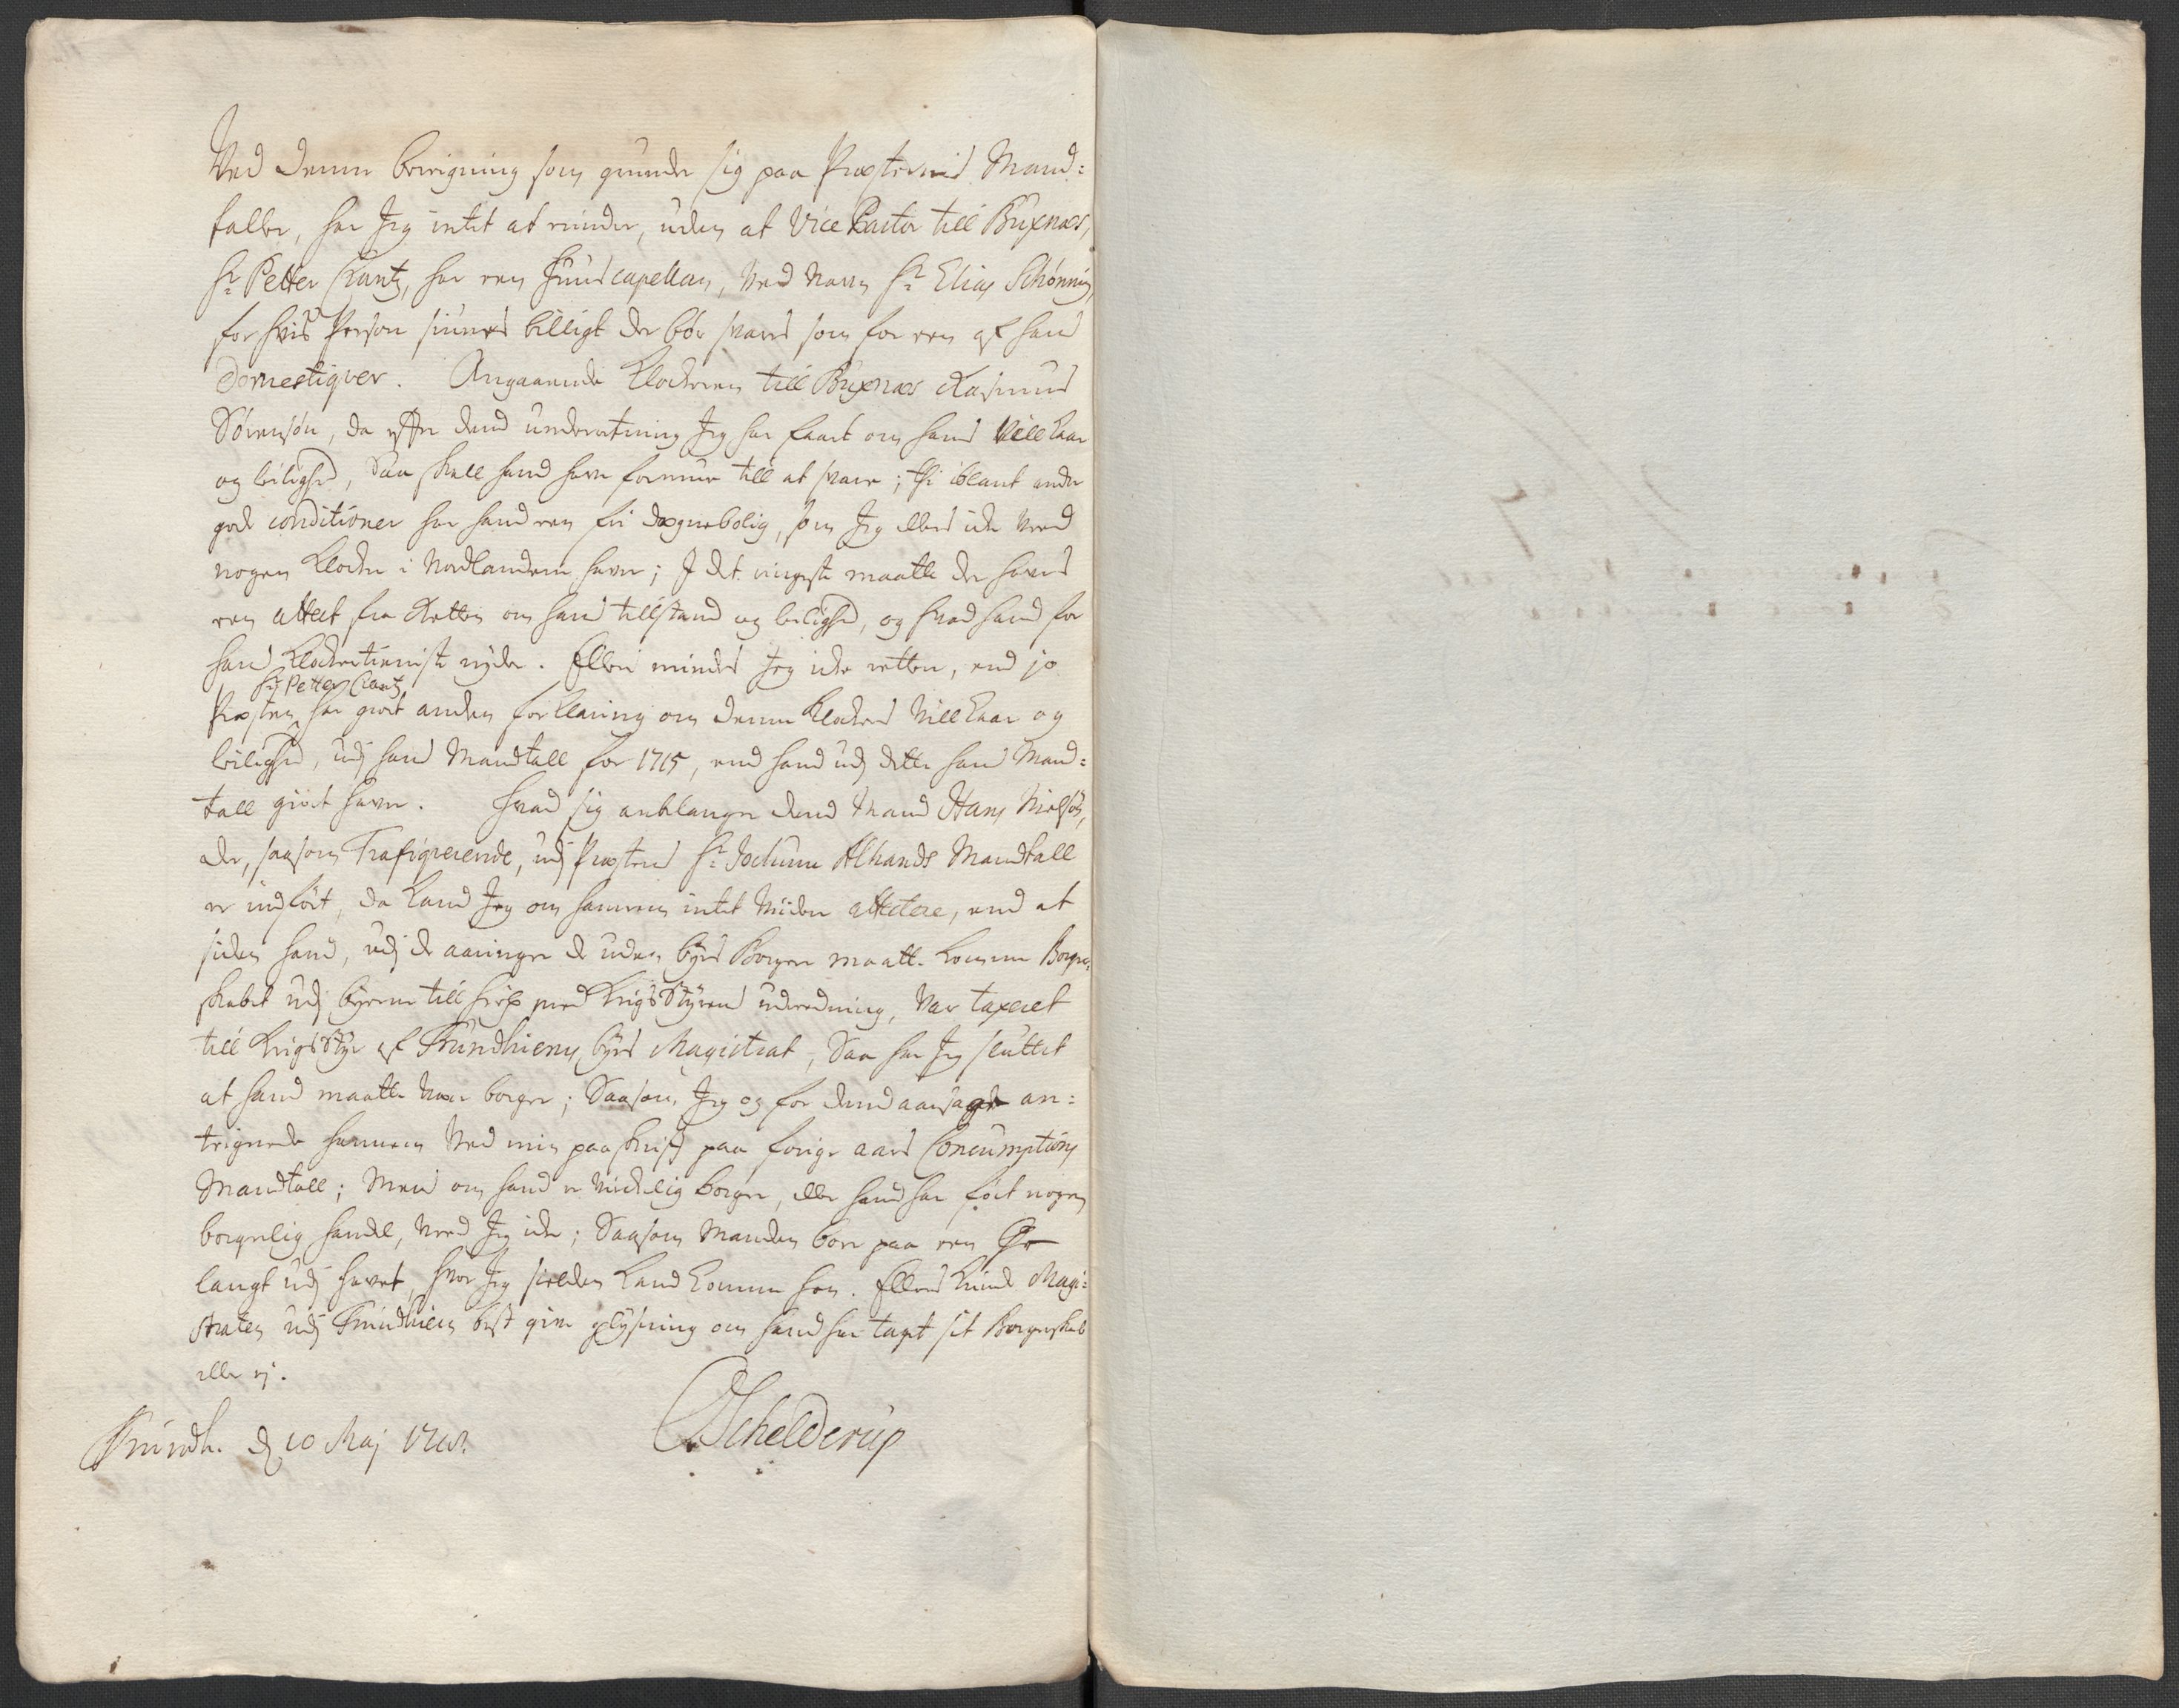 Ved denne beregning som grunder sig paa Præsternis Mand=
taller, har Jeg intet at minde, uden at Vice Pastor till Buxnæs,
Hr Petter Krantz, har een Huuscapellan, ved Navn Hr Elias Schønning,
for hvis Person siunes billigt der bör svares som for een af hans
Domestiqver. Angaaende Klockeren till Buxnæs Rasmus
Sörensön, da efter dend underretning Jeg har faaet om hans Villkaar
og leilighed, Saa skall hand have formue till at svare; thi iblant andre
gode conditioner har hand een fri bolig, som Jeg ellers icke veed
nogen klocker i Nordlandene haver; I det ringeste maatte der haves
een attest fra Retten om hans tillstand og leilighed, og hvad hand for
hans klockertieniste nyder. Ellers mindes Jeg icke rettere, end jo
Hr Petter Krantz
Præsten har giort anden forklaring om denne klockers Villkaar og
leilighed, udj hans Mandtall for 1715, end hand udj dette hans Mand=
tall giort haver. Hvad sig anbelanger dend Mand Hans Nielsön,
der, saasom Trafiqverende, udj Præstens Hr Jochum Alhands Mandtall
er indfört, da kand Jeg om hannem intet videre attestere, end at
siden hand, udj de aaringer de uden byes Borgere maatte komme Borger=
skabet udj byerne till hielp med KrigsStyrens udredning, var taxeret
till KrigsStyr af Trundhiems byes Magistrat, Saa har Jeg sluttet
at hand maatte være borger; Saasom Jeg og for dend aarsage an=
teignede hannem ved min paaskrift paa forige aars Consumptions
Mandtall; Men om hand er virckelig borger, eller hand har fört nogen
borgerlig handel, veed Jeg icke; Saasom Manden boer paa een Öe
langt udj havet, hvor Jeg sielden kand komme hen. Ellers kunde Magi=
straten udj Trundhiem best give oplysning om hand har tagt sit Borgerskab
eller ej.
Trundh. d 10 Maj 1718.
Schelderup